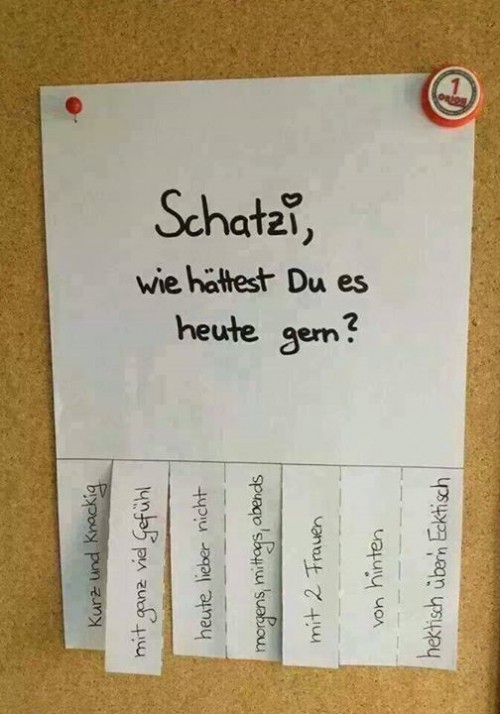 Schatzi,
wie hättest Du es
heute gern?
1
Kurz und Knackig
mit ganz viel Gefühl
heute lieber nicht
morgens, mittags, abends
mit 2 Frauen
von hinten
hektisch über'n Ecktisch